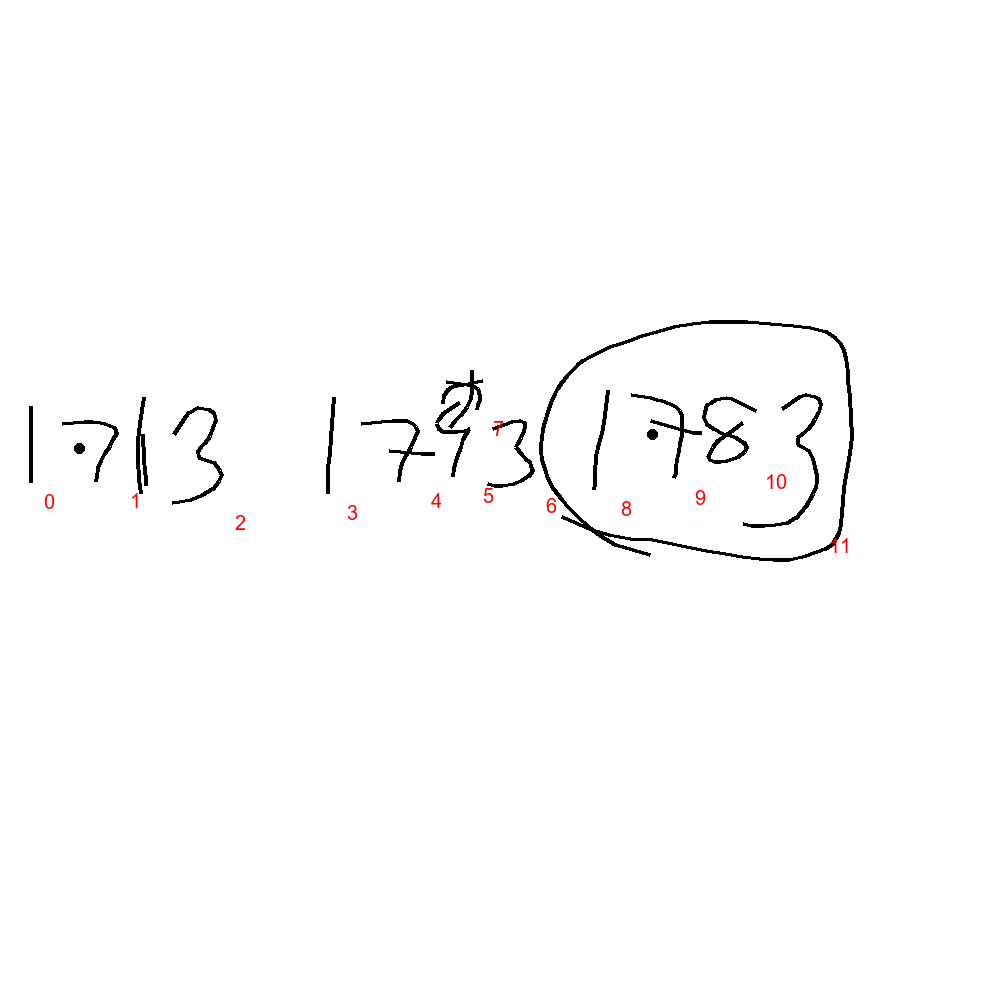 1713 1793 1783
0 1 2 3 4 5 6 7 8 9 10 11